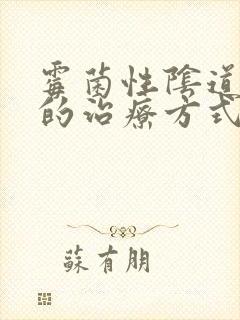 霉菌性陰道
的治療方式
蘇有朋